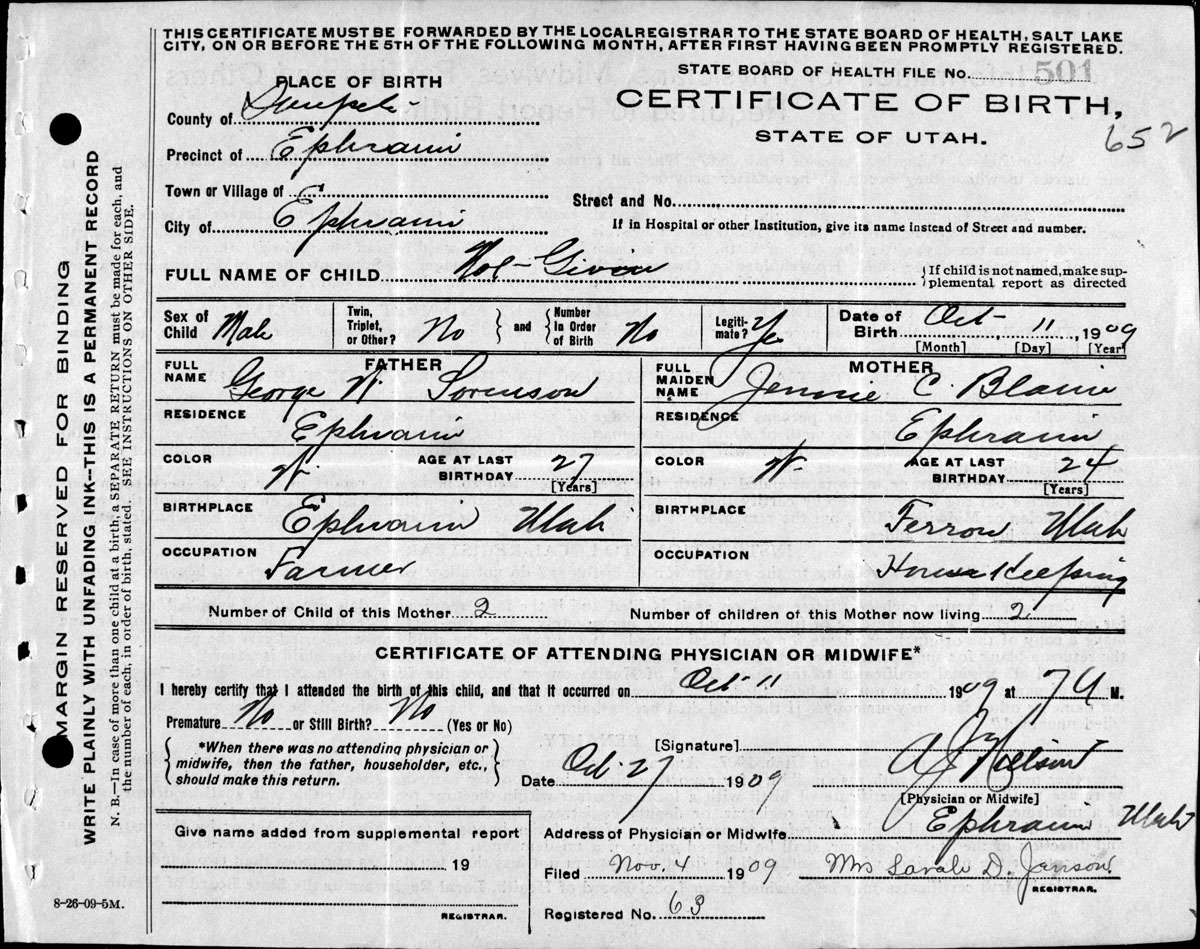 THIS CERTIFICATE MUST BE FORWARDED BY THE LOCAL REGISTRAR TO THE STATE BOARD OF HEALTH, SALT LAKE
CITY, ON OR BEFORE THE 5TH OF THE FOLLOWING MONTH, AFTER FIRST HAVING BEEN PROMPTLY REGISTERED.
STATE BOARD OF HEALTH FILE No. 501
PLACE OF BIRTH
CERTIFICATE OF BIRTH,
STATE OF UTAH.
652
County of
Precinct of Ephraim
Town or Village of
Street and No.
City of Ephraim
If in Hospital or other Institution, give its name instead of Street and number.
FULL NAME OF CHILD Not-Given
If child is not named, make sup-
plemental report as directed
Sex of Child Male
Twin, Triplet, or Other? No and Number In Order of Birth No
Legiti-mate? Yes
Date of Birth Oct 11, 1909
[Month] [Day] [Year]
FATHER
FULL NAME George W. Sorenson
RESIDENCE Ephraim
COLOR W.
AGE AT LAST BIRTHDAY 27
[Years]
BIRTHPLACE Ephraim Utah
OCCUPATION Farmer
MOTHER
FULL MAIDEN NAME Jennie C. Blain
RESIDENCE Ephraim
COLOR W
AGE AT LAST BIRTHDAY 24
[Years]
BIRTHPLACE Ferron Utah
OCCUPATION House Keeping
Number of Child of this Mother 2
Number of children of this Mother now living 2
CERTIFICATE OF ATTENDING PHYSICIAN OR MIDWIFE*
I hereby certify that I attended the birth of this child, and that it occurred on Oct 11 1909 at 7 M.
Premature No or Still Birth? No (Yes or No)
*When there was no attending physician or
midwife, then the father, householder, etc.,
should make this return.
[Signature]
A J Nielson
Date Oct. 27 1909
[Physician or Midwife]
Give name added from supplemental report
19
REGISTRAR.
Address of Physician or Midwife Ephraim Utah
Filed Nov. 4 1909
Mrs Sarah D.
REGISTRAR.
Registered No. 63
8-26-09-5M.
MARGIN RESERVED FOR BINDING
WRITE PLAINLY WITH UNFADING INK—THIS IS A PERMANENT RECORD
N. B.—In case of more than one child at a birth, a SEPARATE RETURN must be made for each, and
the number of each, in order of birth, stated. SEE INSTRUCTIONS ON OTHER SIDE.